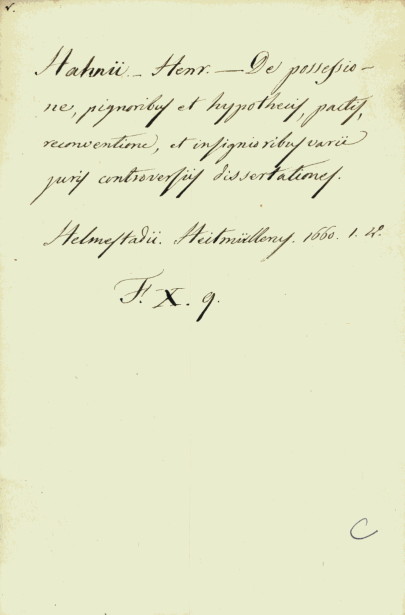 Hahnii. - Henr. — De possessio-
ne, pignoribus et hypothecis, pactis,
reconventione, et insignioribus varii
juris controversiis dissertationes.
Helmestadii. Heitmüllerus. 1660. 1. 4°.
F. X. 9.
C